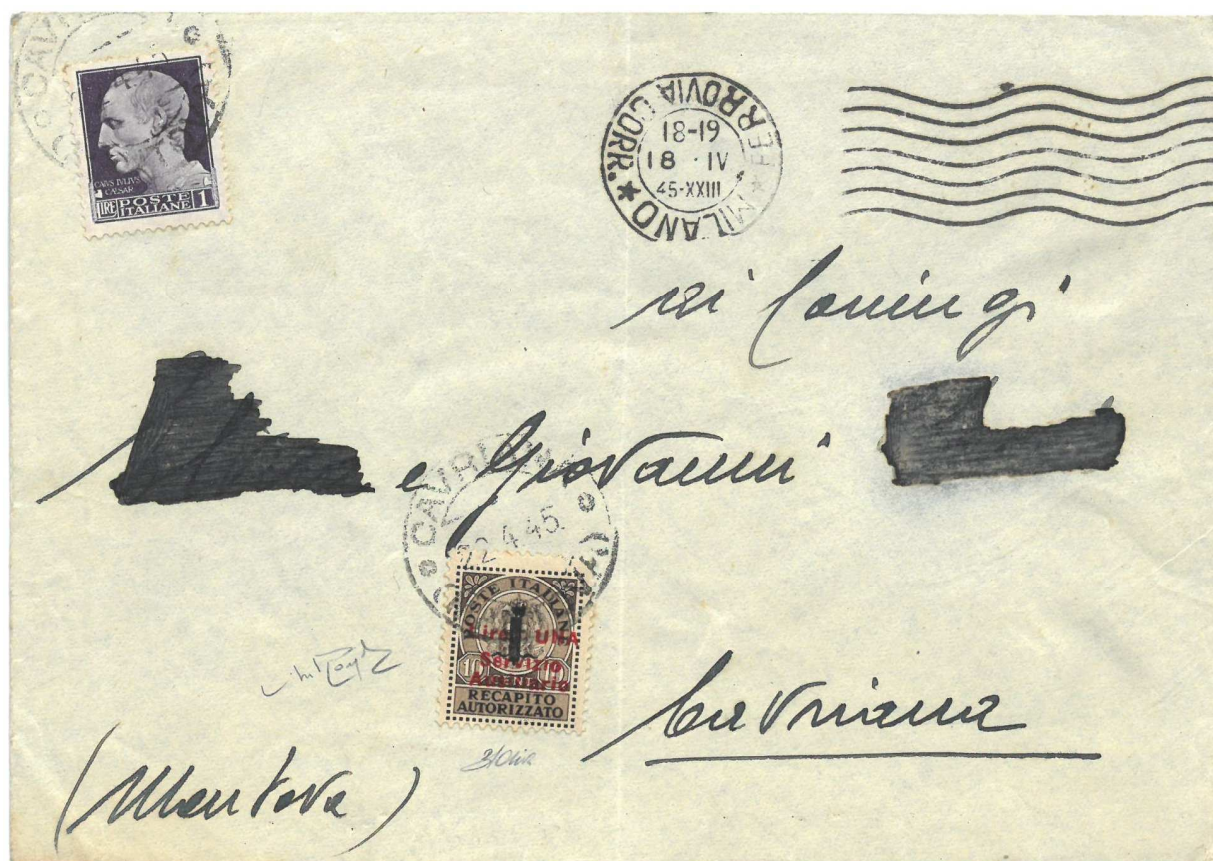 CAVRI
CAIVS IVLIVS
CAESAR
LIRE POSTE ITALIANE 1
MILANO FERROVIA CORR.
18-19
18 · IV
45-XXIII
ai Coniugi
e Giovanni
CAVRI
22.4.45
POSTE ITALIANE
10
Lire UNA
Servizio
Ausiliario
RECAPITO
AUTORIZZATO
Cavriana
(Mantova)